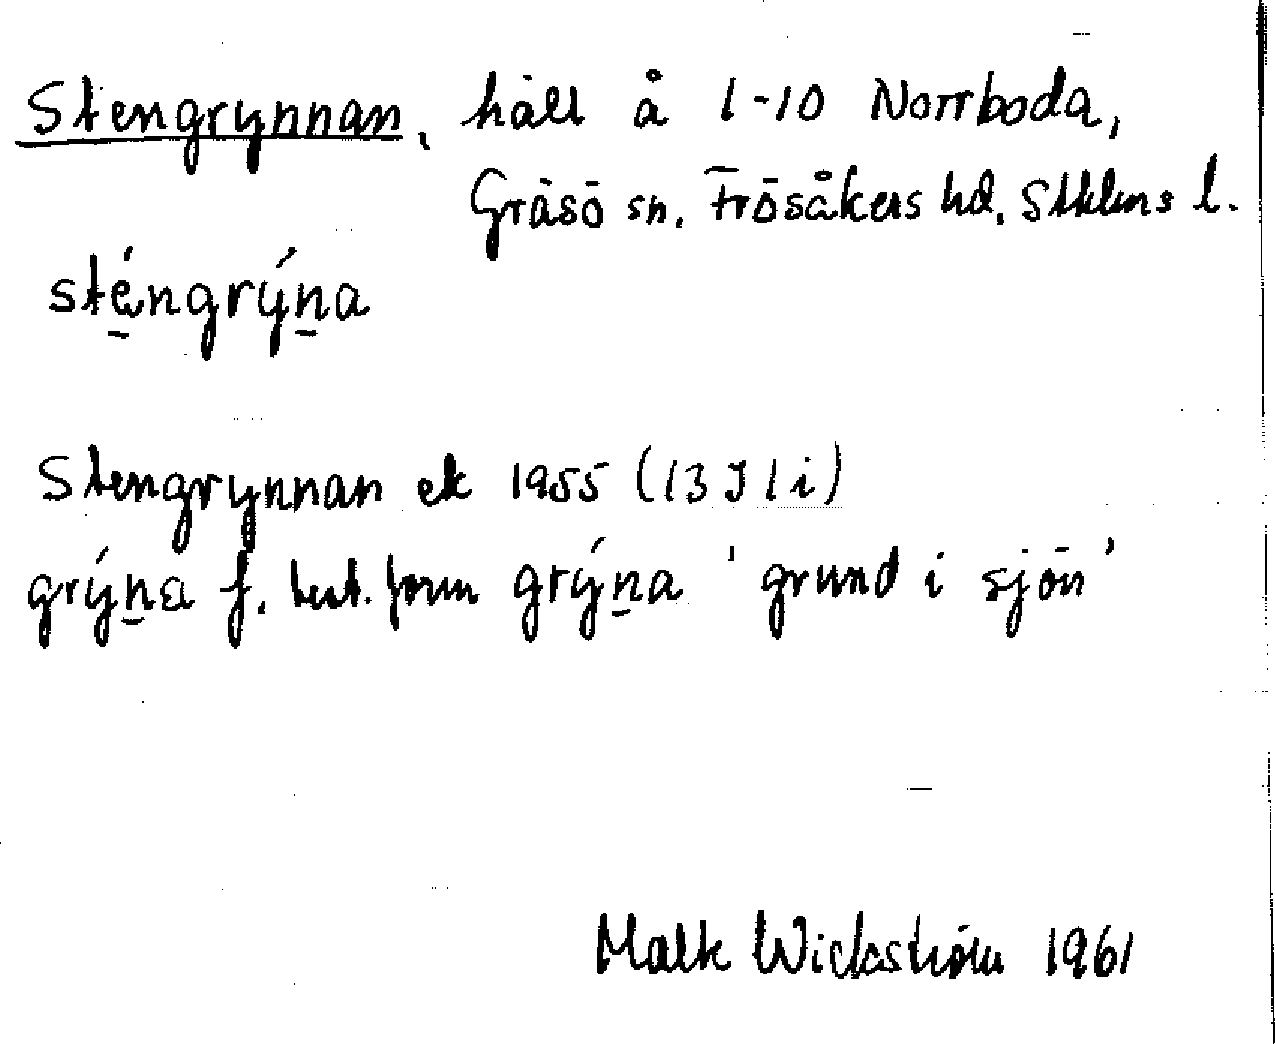 Stengrynnan, häll å 1-10 Norrboda,
Gräsö sn. Frösåkers hd, Sthlms l.
sténgrýṉa
Stengrynnan ek 1955 (13 J 1 i)
grýṉa f. best. form grýṉa 'grund i sjön'
Wickström 1961